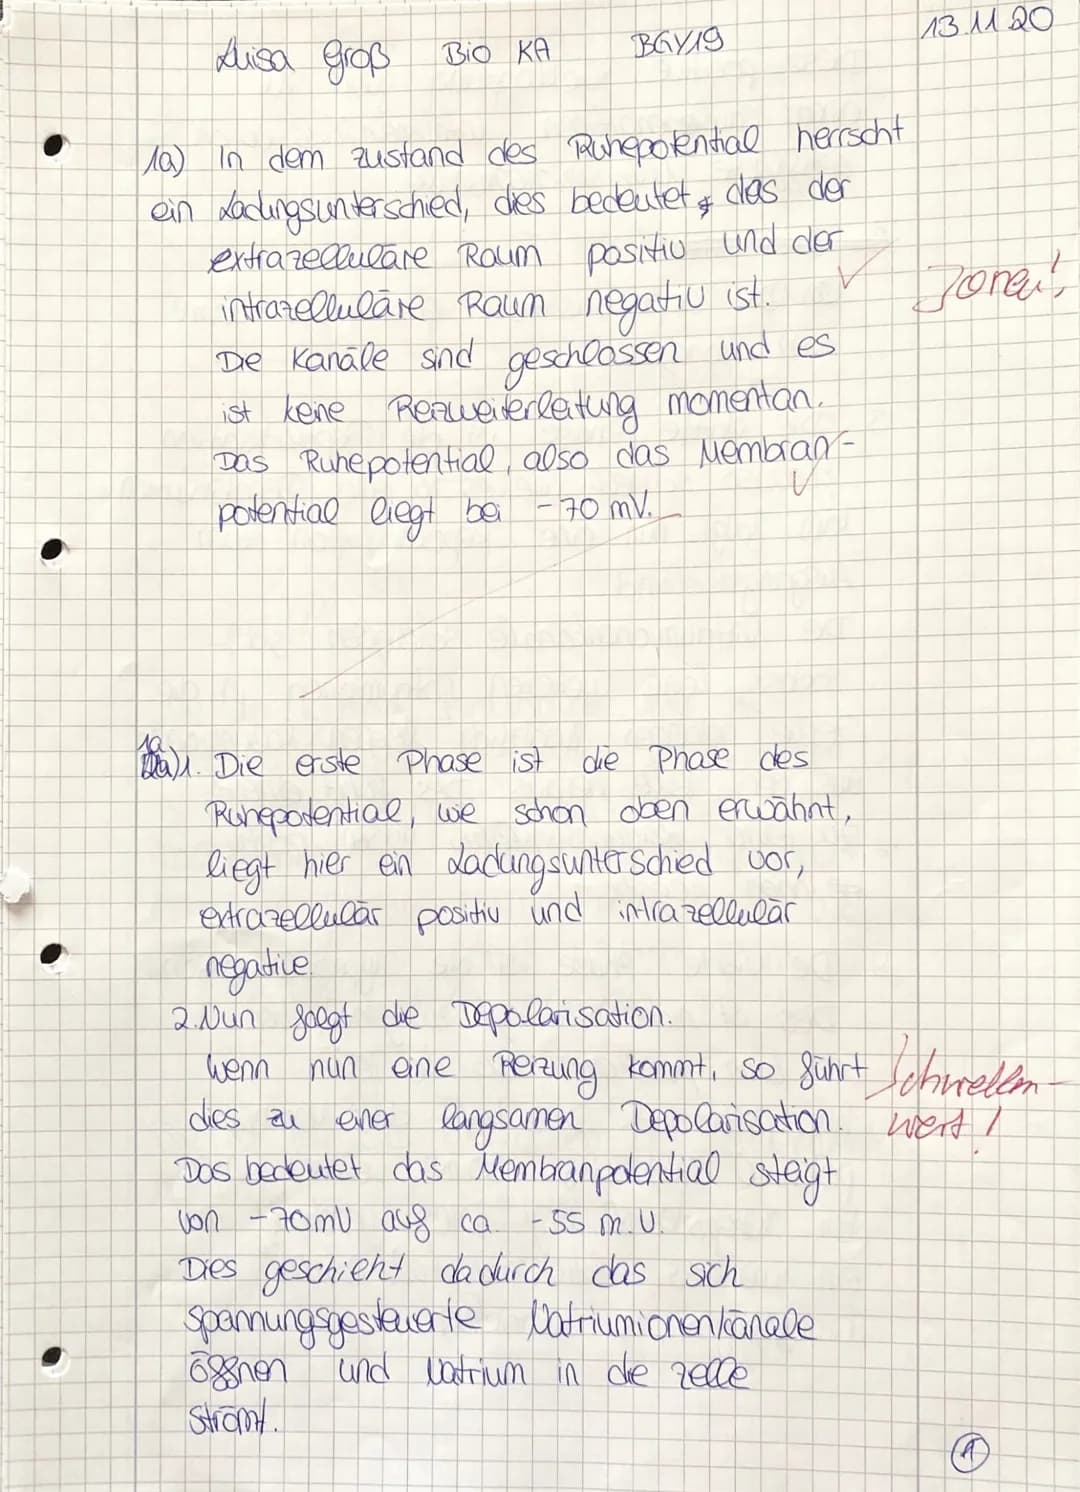 Luisa Groß Bio KA BGY19 13.11.20
1a) In dem zustand des Ruhepotential herrscht
ein Ladungsunterschied, dies bedeutet, das der
extrazelluläre Raum positiv und der
intrazelluläre Raum negativ ist. Ionen!
Die Kanäle sind geschlossen und es
ist keine Reizweiterleitung momentan.
Das Ruhepotential, also das Membran-
potential liegt bei -70 mV.
1a)1. Die erste Phase ist die Phase des
Ruhepotential, wie schon oben erwähnt,
liegt hier ein Ladungsunterschied vor,
extrazellulär positiv und intrazellulär
negative.
2. Nun folgt die Depolarisation.
Wenn nun eine Reizung kommt, so führt Schwellen-
dies zu einer langsamen Depolarisation. wert!
Das bedeutet das Membranpotential steigt
von -70mV auf ca. -55 m.V.
Dies geschieht dadurch das sich
spannungsgesteuerte Natriumionenkanäle
öffnen und Natrium in die zelle
strömt.
1